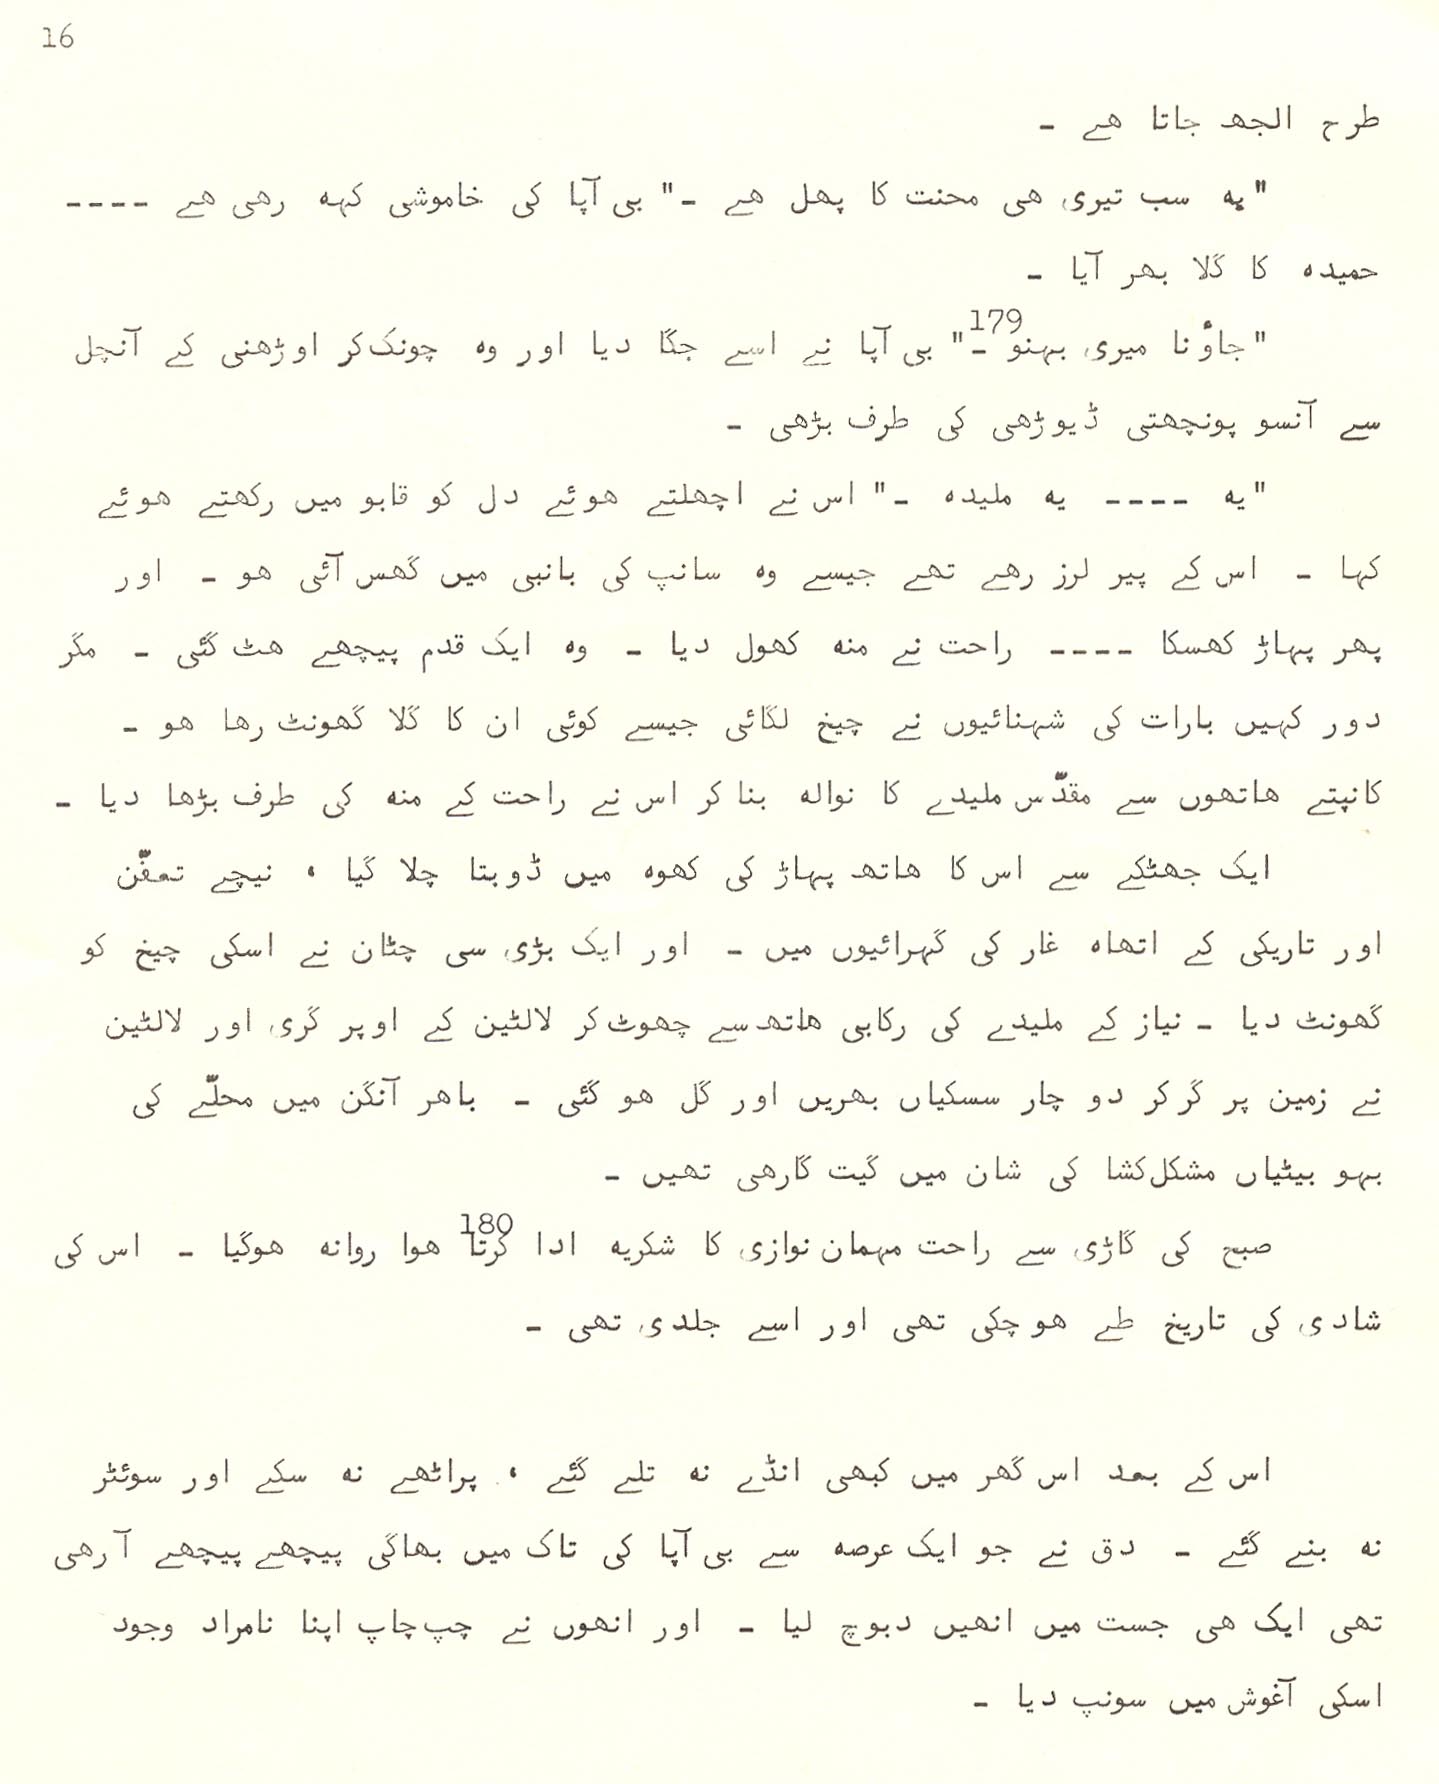 16
طرح الجھ جاتا ھے ۔
"یہ سب تیری ھی محنت کا پھل ھے ۔" بی آپا کی خاموشی کہہ رھی ھے ----
حمیدہ کا گلا بھر آیا ۔
"جاؤ نا میری بہنو ۔179" بی آپا نے اسے جگا دیا اور وہ چونک کر اوڑھنی کے آنچل
سے آنسو پونچھتی ڈیوڑھی کی طرف بڑھی ۔
"یہ ---- یہ ملیدہ ۔" اس نے اچھلتے ھوئے دل کو قابو میں رکھتے ھوئے
کہا ۔ اس کے پیر لرز رھے تھے جیسے وہ سانپ کی بانبی میں گھس آئی ھو ۔ اور
پھر پہاڑ کھسکا ---- راحت نے منہ کھول دیا ۔ وہ ایک قدم پیچھے ھٹ گئی ۔ مگر
دور کہیں بارات کی شہنائیوں نے چیخ لگائی جیسے کوئی ان کا گلا گھونٹ رھا ھو ۔
کانپتے ھاتھوں سے مقدّس ملیدے کا نوالہ بنا کر اس نے راحت کے منہ کی طرف بڑھا دیا ۔
ایک جھٹکے سے اس کا ھاتھ پہاڑ کی کھوہ میں ڈوبتا چلا گیا ، نیچے تعفّن
اور تاریکی کے اتھاہ غار کی گہرائیوں میں ۔ اور ایک بڑی سی چٹان نے اسکی چیخ کو
گھونٹ دیا ۔ نیاز کے ملیدے کی رکابی ھاتھ سے چھوٹ کر لالٹین کے اوپر گری اور لالٹین
نے زمین پر گر کر دو چار سسکیاں بھریں اور گل ھو گئی ۔ باھر آنگن میں محلّے کی
بہو بیٹیاں مشکل کشا کی شان میں گیت گارھی تھیں ۔
صبح کی گاڑی سے راحت مہمان نوازی کا شکریہ ادا کرتا180 ھوا روانہ ھوگیا ۔ اس کی
شادی کی تاریخ طے ھو چکی تھی اور اسے جلدی تھی ۔
اس کے بعد اس گھر میں کبھی انڈے نہ تلے گئے ، پراٹھے نہ سکے اور سوئٹر
نہ بنے گئے ۔ دق نے جو ایک عرصہ سے بی آپا کی تاک میں بھاگی پیچھے پیچھے آرھی
تھی ایک ھی جست میں انھیں دبوچ لیا ۔ اور انھوں نے چپ چاپ اپنا نامراد وجود
اسکی آغوش میں سونپ دیا ۔